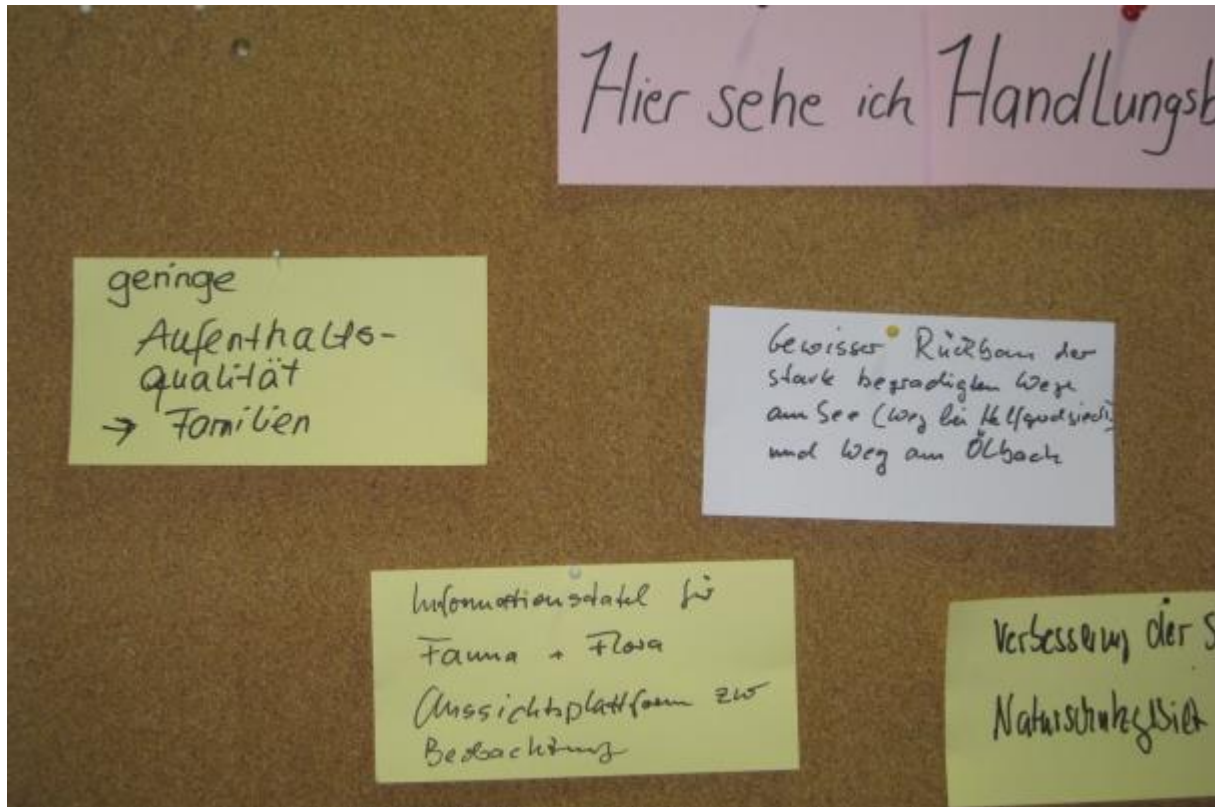 Hier sehe ich Handlungsb
geringe
Aufenthalts-
qualität
→ Familien
Gewisser Rückbau der
stark begradigten Wege
am See (Weg bei
und Weg am Ölbach
Informationstafel für
Fauna + Flora
Aussichtsplattform zur
Beobachtung
Verbesserung der S
Naturschutzgebiet